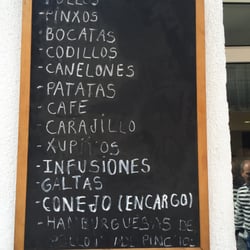 POLLOS
-PINXOS
-BOCATAS
-CODILLOS
-CANELONES
-PATATAS
-CAFE
-CARAJILLO
-XUPITOS
-INFUSIONES
-GALTAS
-CONEJO (ENCARGO)
-HAMBURGUESAS DE
POLLO